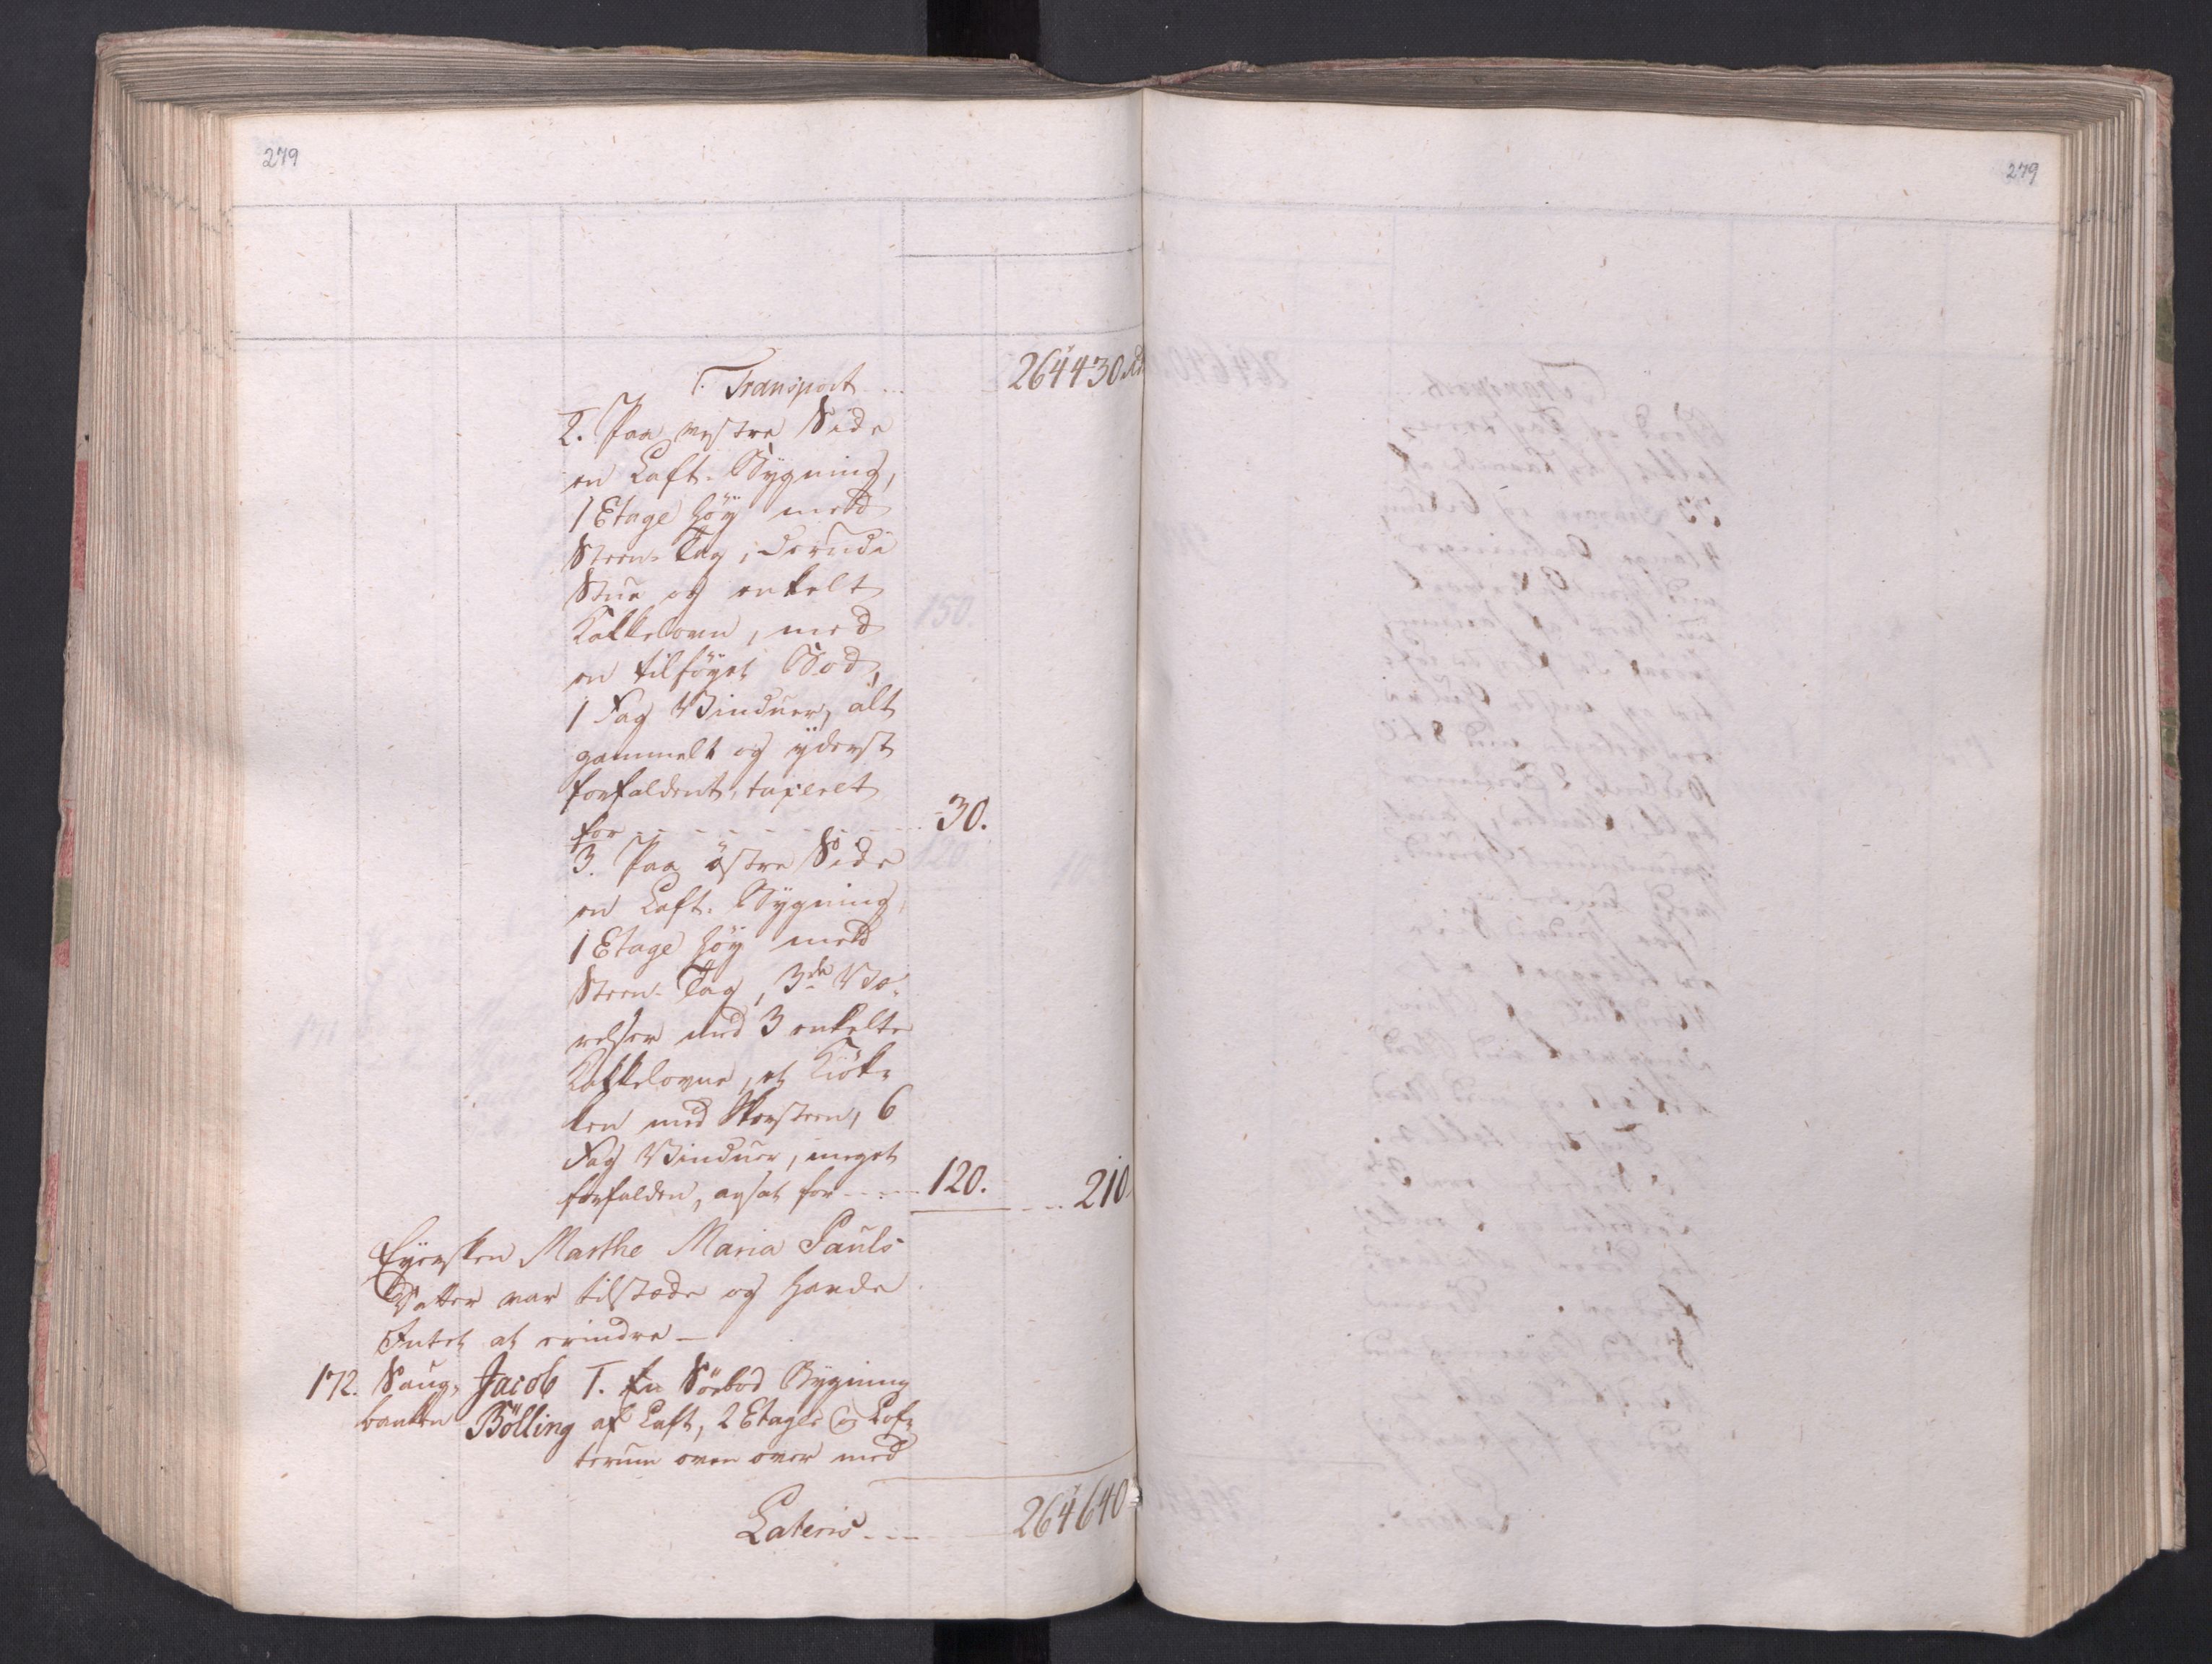 279
279
Transport ... 264430 Rd
2. Paa vestre Side
en Laft-Bygning,
1 Etage höy med
Steen-Tag, derudi
Stue og enkelt
Kakkelovn, med
en tilföyet Bod,
1 Fag Vinduer, alt
gammelt og yderst
forfaldent, taxeret
for - - - - - - - 30.
3. Paa östre Side
en Laft-Bygning,
1 Etage höy med
Steen-Tag, 3de Væ-
relser med 3 enkelte
Kakkelovne, et Kiök-
ken med Skorsteen, 6
Fag Vinduer, meget
forfalden, ansat for - - - 120. ... 210
Eyersken Marthe Maria Pauls
Datter var tilstæde og havde
Intet at erindre -
172. Saug- Jacob 1. En Söebod Bygning
banken Bölling af Laft, 2 Etager og Lof-
terum oven over med
Lateris - - - 264640